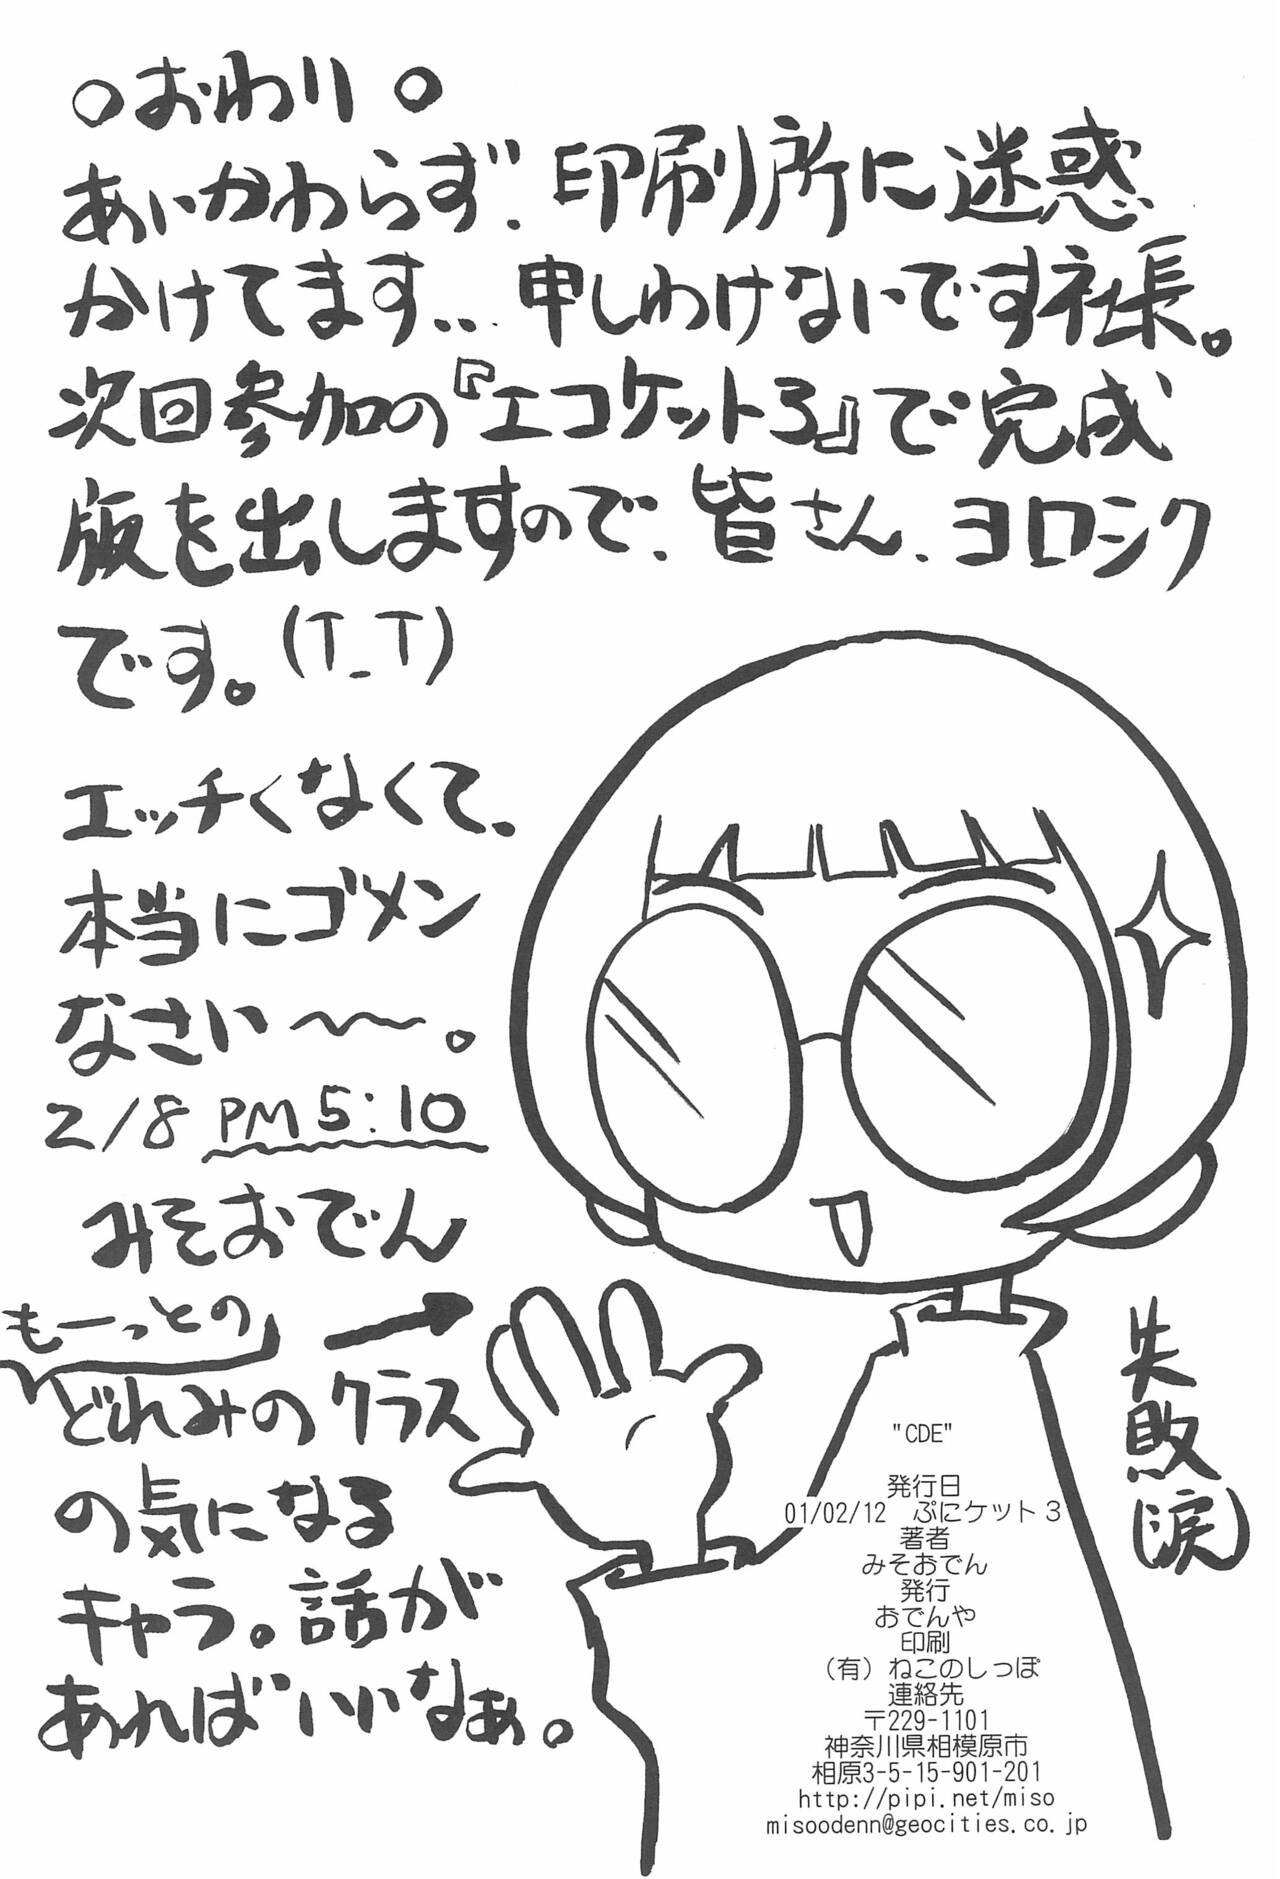 ○おわり○
あいかわらず、印刷所に迷惑
かけてます… 申しわけないです社長。
次回参加の『エコケット3』で完成
版を出しますので、皆さん、ヨロシク
です。(T_T)
エッチくなくて、
本当にゴメン
なさい〜〜。
2/8 PM5:10
みそおでん
もーっとの
どれみのクラス
の気になる
キャラ。話が
あればいいなぁ。
失敗(涙)
"CDE"
発行日
01/02/12 ぷにケット3
著者
みそおでん
発行
おでんや
印刷
(有)ねこのしっぽ
連絡先
〒229-1101
神奈川県相模原市
相原3-5-15-901-201
http://pipi.net/miso
misoodenn@geocities.co.jp